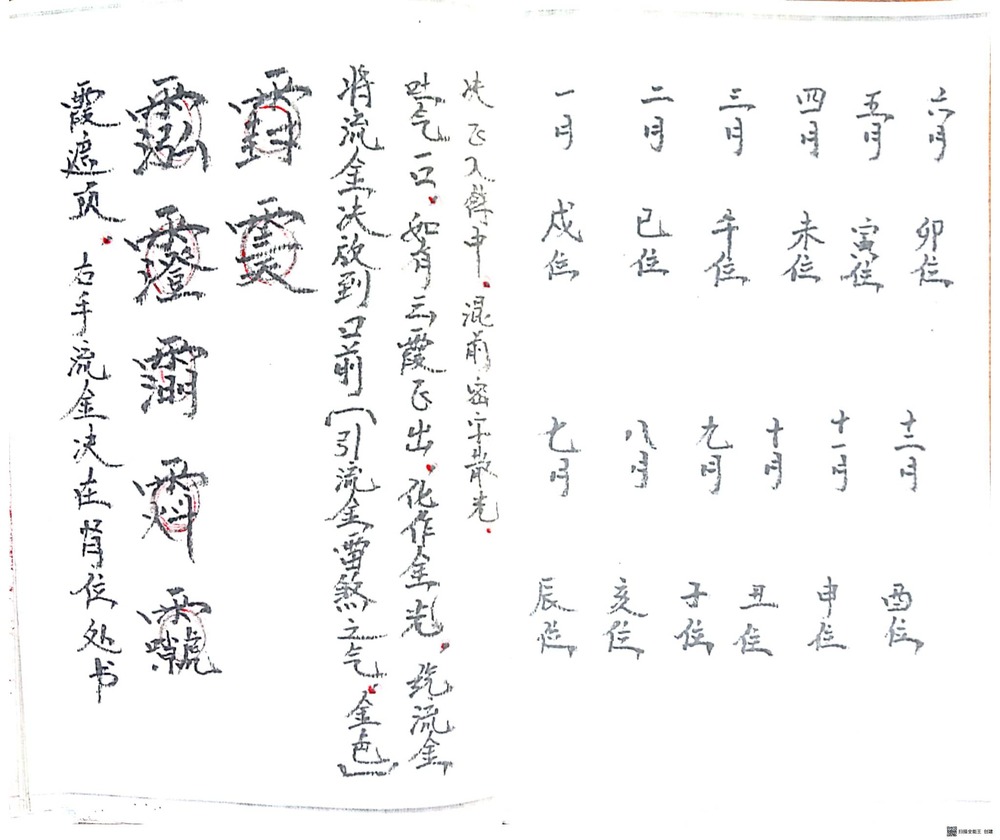 霞遮顶。右手流金决在肾位处书
将流金决放到口前(引流金雷煞之气。金色)
吐气一口。如有云霞飞出。化作金光。流金
决飞入中。混前密字散光。
一月 二月 三月 四月 五月 六月
戌位 巳位 午位 未位 寅位 卯位
七月 八月 九月 十月 十一月 十二月
辰位 亥位 子位 丑位 申位 酉位
扫描全能王 创建